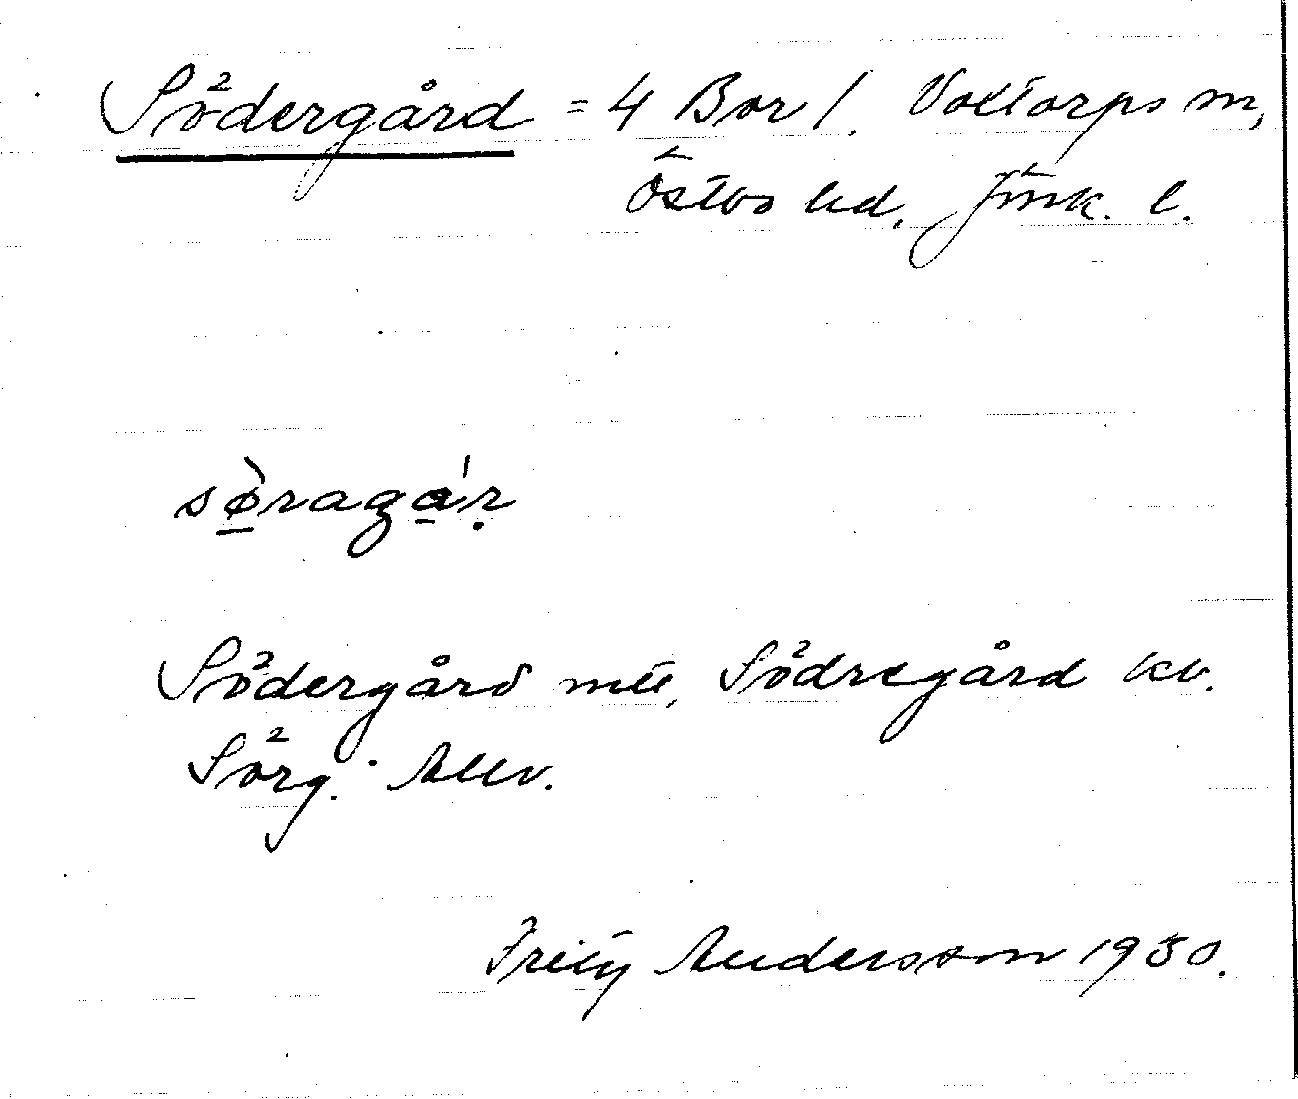 Södergård = 4 Bor 1. Voxtorps sn,
Östbo hd, Jönk. l.
sø̱̀ragá̱ṛ
Södergård mtl, Södregård kv.
Sörg. Allv.
Fritz Andersson 1930.